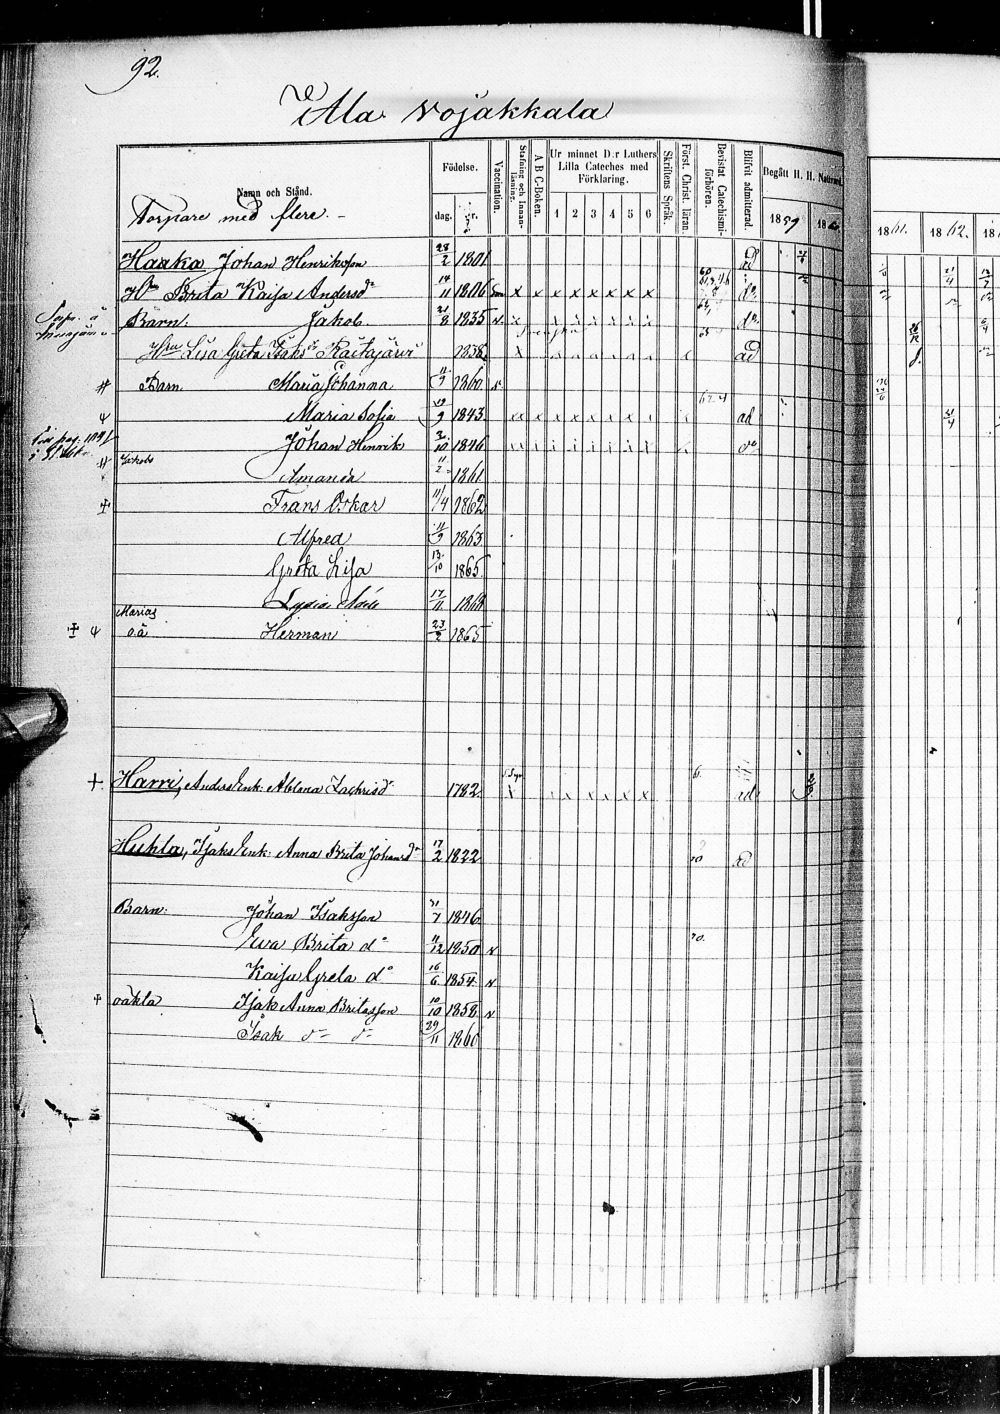 92.
Ala Vojakkala
Namn och Stånd.
Torpare med flere.
Födelse.
dag. år.
Vaccination.
Stafning och Innanläsning.
A B C-Boken.
Ur minnet D:r Luthers Lilla Cateches med Förklaring.
1 2 3 4 5 6
Skriftens Språk.
Först. Christ. läran.
Bevistat Catechismiförhören.
Blifvit admitterad.
Begått H. H. Nattvard.
1859 186
1861. 1862. 18
Haaka Johan Henriksson 28/2 1801 ad
Hu Brita Kaisa Andersd 14/11 1806 x x x x x x x x do
Barn: Jakob. 21/8 1835 v. do
Hu Lisa Greta Isaks Raitajärvi 1838 x ad
Barn Maria Johanna 11/9 1860 v
Maria Sofia 19/9 1843 x x x x x x ad
Johan Henrik 3/10 1846 do
Jakobs
Amanda 11/2 1861
Frans Oskar 11/4 1862
Alfred 11/9 1863
Greta Lisa 13/10 1865
Lydia 17/11 1868
Marias
oä Herman 23/2 1865
Harri, Anders Enk: Zachrisd 1782. x x x x x x ad
Huhta, Isaks Enk: Anna Brita Johansd 17/2 1822 ad
Barn: Johan Isaksson 31/7 1846
Eva Brita do 11/12 1850 v 70.
Kaisa Greta do 16/6 1854 v
oäkta Isak Anna Britasson 10/10 1858 v
Isak do do 29/11 1860